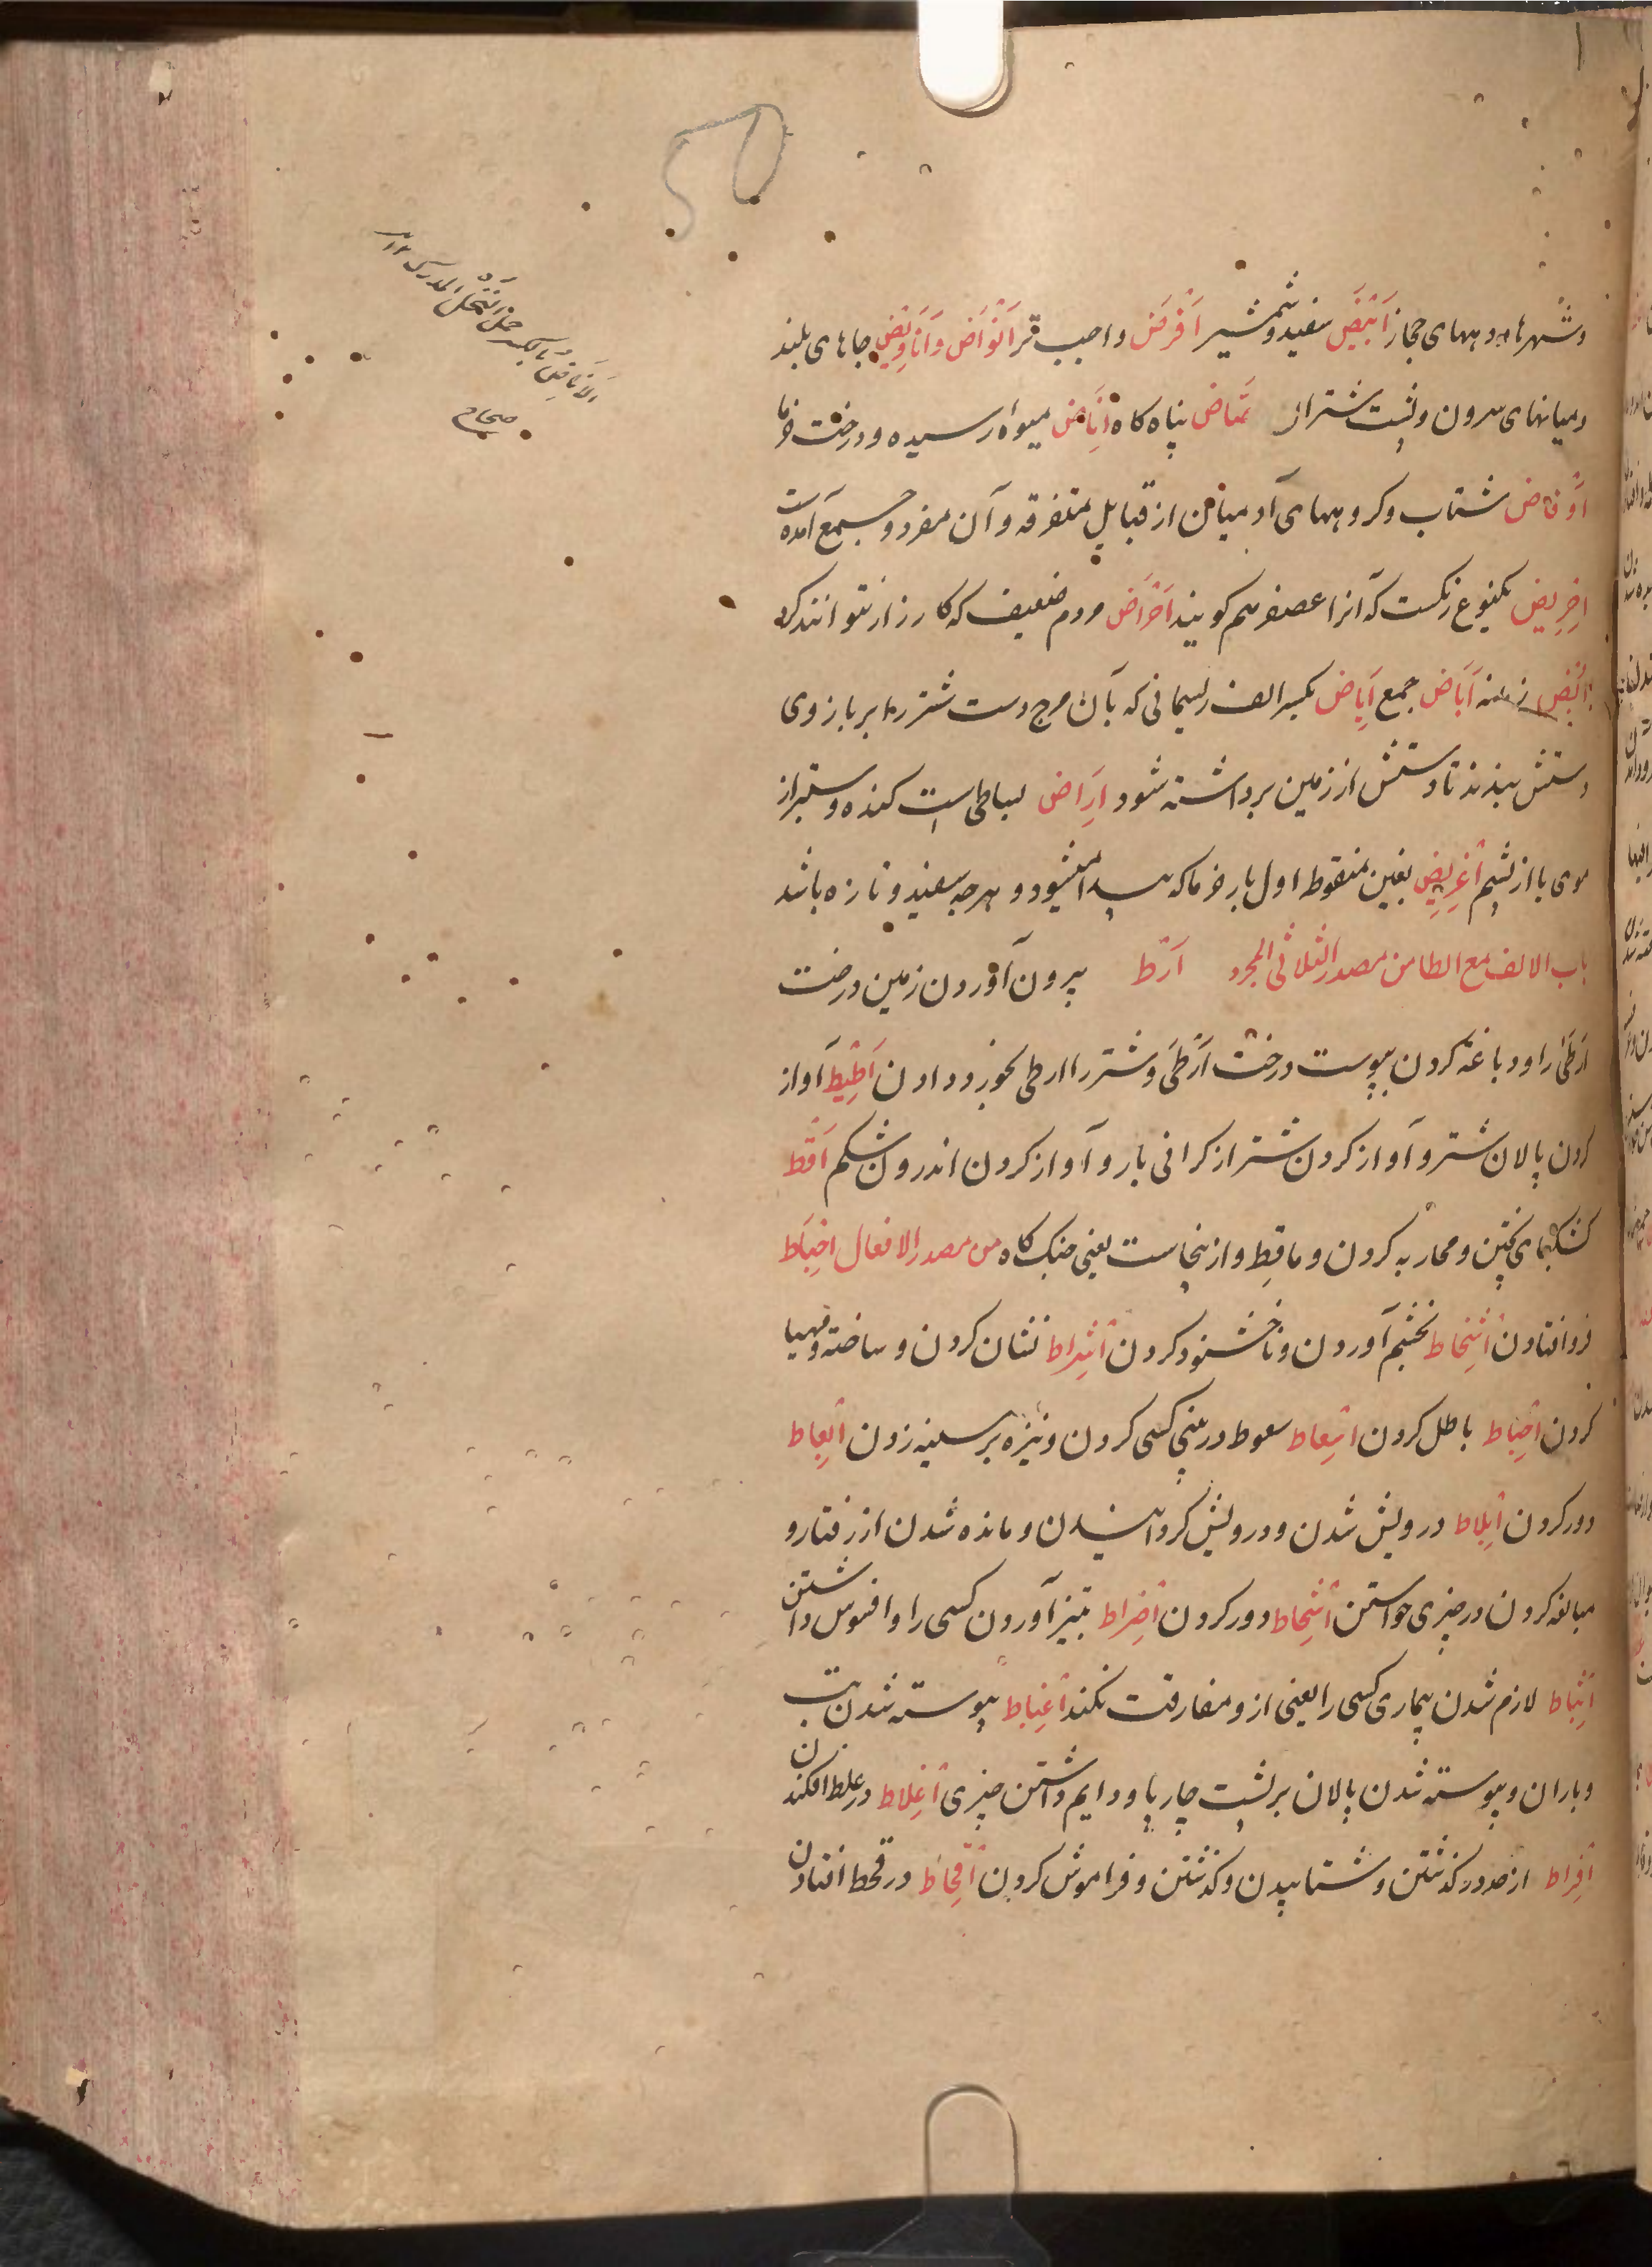 وشهرها و دیههای حجاز اَبْیَض سفید و شمشیر اَفْرَض واجب تر اَنْوَاض وَاَنَاوِیض جاهای بلند
ومیانهای سرون وپشت شتران پناه کاه اَنَاض میوهٔ رسیده و درخت خرما
اَوْفَاض شتاب وکروههای آدمیان از قبایل متفرقه و آن مفرد وجمع آمده است
اِخْرِیض یکنوع رنکست که آنرا عصفر هم کویند اَحْرَاض مردم ضعیف که کارزار نتوانند کرد
اُبُض زمانه آبَاض جمع اِبَاض بکسر الف ریسمانی که بآن مرج دست شتر را بر بازوی
دستش بندند تا دستش از زمین برداشته شود اِرَاض بساطی است کنده وستبر از
موی یا از پشم اِغْرِیض بغین منقوط اول بار خرما که پیدا میشود و هرچه سفید و تازه باشد
باب الالف مع الطا من مصدر الثلاثی المجرد اَرْط بیرون آوردن زمین درخت
اَرْطَیٰ را و دباغة کردن بپوست درخت اَرْطَیٰ وشتر را ارطی بخورد دادن اَطِیط آواز
کردن پالان شتر و آواز کردن شتر از کرانی بار و آواز کردن اندرون شکم اَقْط
کشکهای پختن و محاربه کردن و ماقِط و ازینجاست یعنی جنک کاه من مصدر الافعال اِخْبَاط
فروافتادن اِسْخَاط بخشم آوردن و ناخشنود کردن اِشْرَاط نشان کردن و ساخته ومهیا
کردن اِحْبَاط باطل کردن اِسْعَاط سعوط در بینی کسی کردن ونیزه بر سینه زدن اِبْعَاط
دور کردن اِبْلَاط درویش شدن و درویش کردانیدن و مانده شدن از رفتار و
مبالغه کردن در چیزی خواستن اِشْحَاط دور کردن اِضْرَاط بتیز آوردن کسی را و افسوس داشتن
اِثْبَاط لازم شدن بیماری کسی را یعنی ازو مفارقت نکند اِغْبَاط پیوسته شدن تب
و باران و پیوسته شدن پالان بر پشت چارپا و دایم داشتن چیزی اِغْلَاط در غلط افکندن
اِفْرَاط از حد درکذشتن و شتابیدن وکذشتن و فراموش کردن اِقْحَاط در قحط افتادن
الاناض بالکسر حمل النخل المدرک ۱۲
صحاح